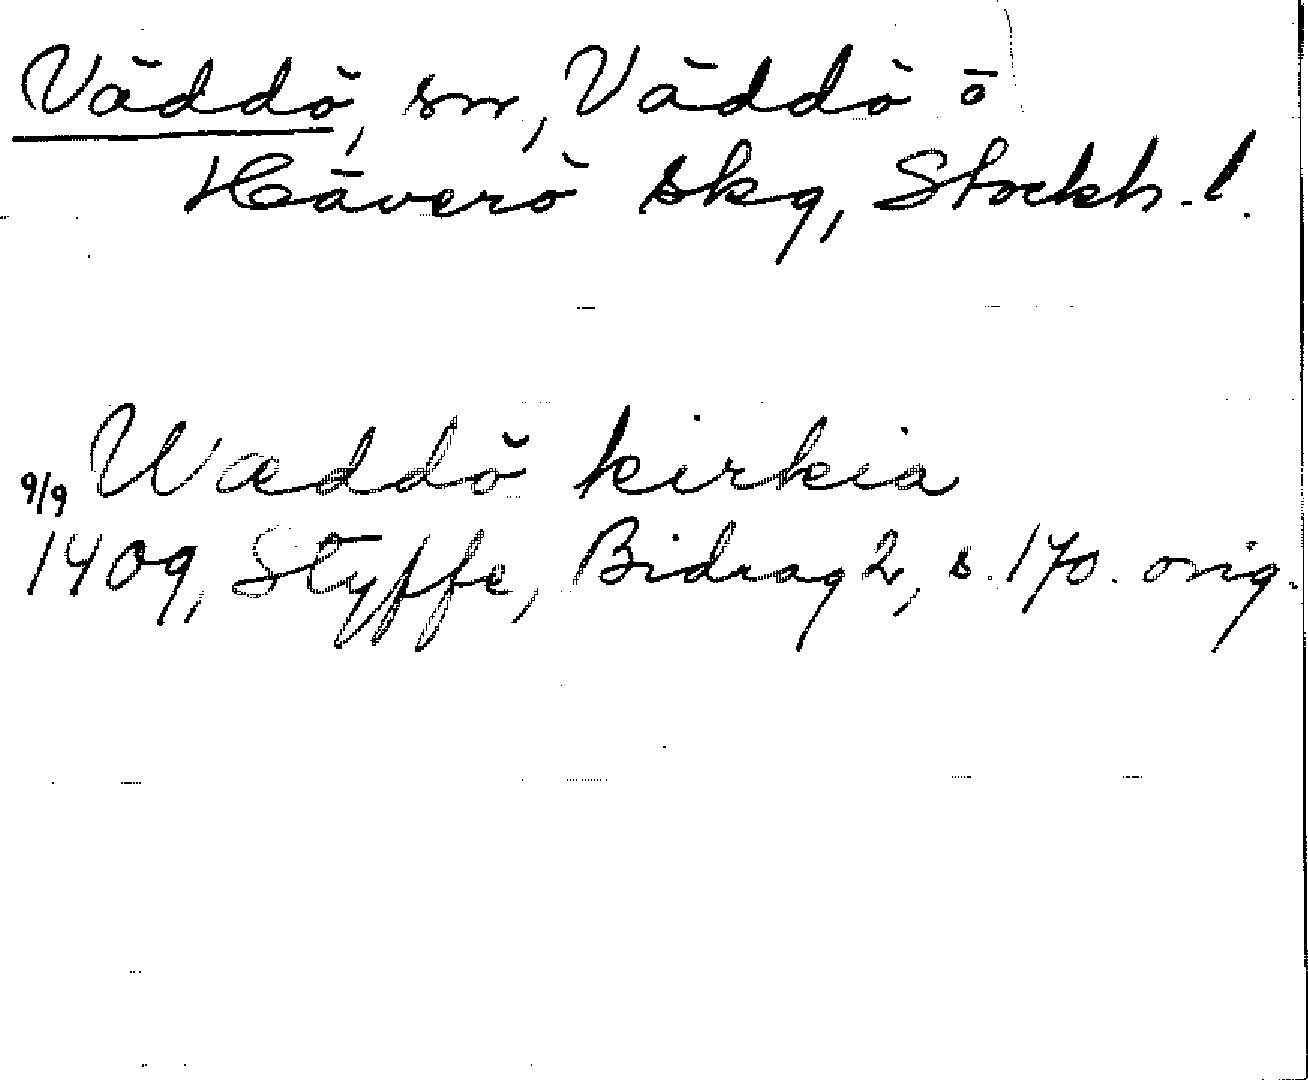 Väddö, sn, Väddö o
Häverö skg, Stockh. l.
Wæddö kirkia
9/9
1409, Styffe, Bidrag 2, s. 170. orig.